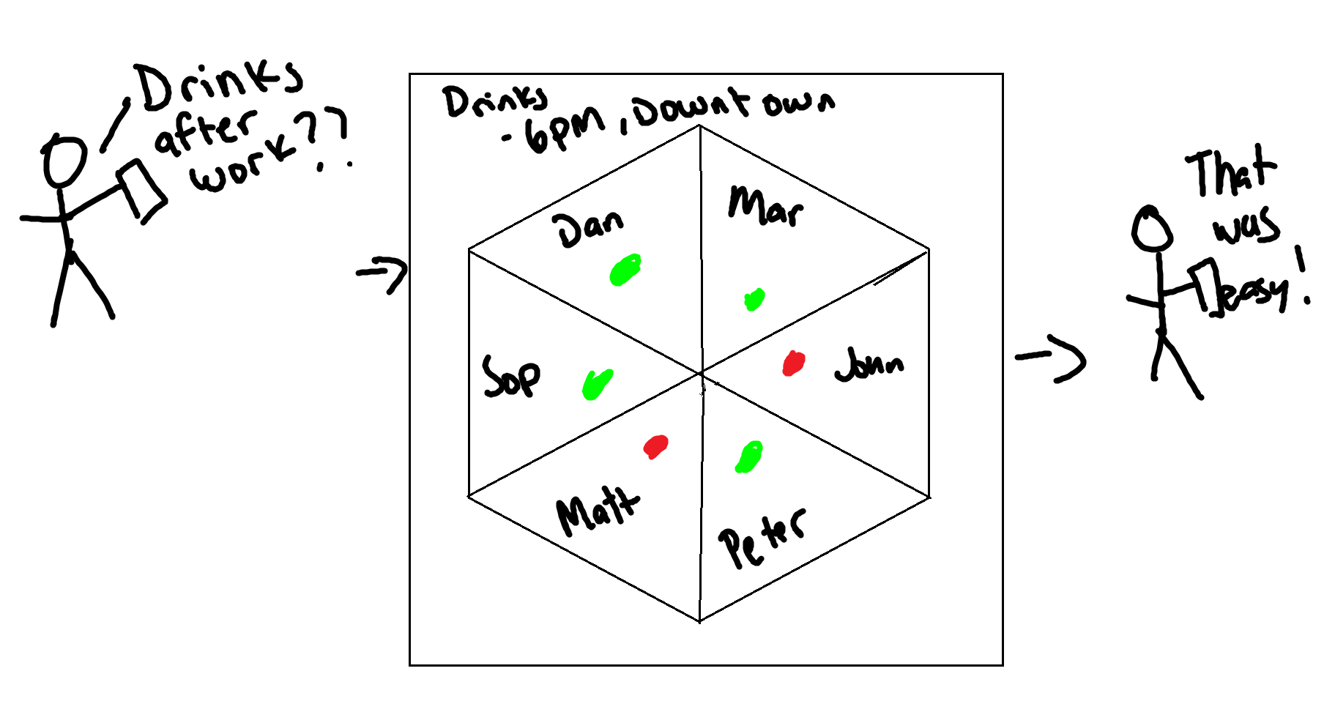 Drinks
after
work??
Drinks
- 6pm, Downtown
Dan
Mar
Sop
John
Matt
Peter
That
was
easy!